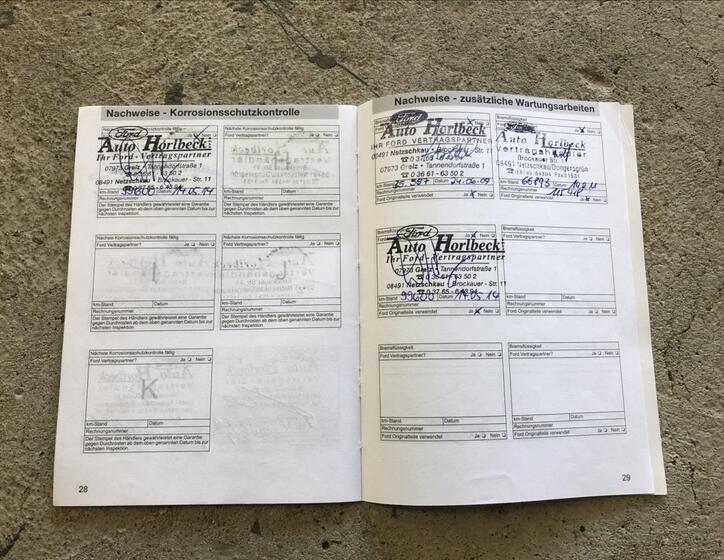 Nachweise - Korrosionsschutzkontrolle
Ford
Auto Horlbeck
Ihr Ford-Vertragspartner
07973 Greiz • Tannendorfstraße 1
☎ 0 36 61-63 50 2
08491 Netzschkau • Brockauer Str. 11
km-Stand 99600 Datum 14.05.14
Rechnungsnummer
Der Stempel des Händlers gewährleistet eine Garantie
gegen Durchrosten ab dem oben genannten Datum bis zur
nächsten Inspektion.
Nächste Korrosionsschutzkontrolle fällig
Ford Vertragspartner? Ja ❏ Nein ❏
km-Stand Datum
Rechnungsnummer
Der Stempel des Händlers gewährleistet eine Garantie
gegen Durchrosten ab dem oben genannten Datum bis zur
nächsten Inspektion.
Nächste Korrosionsschutzkontrolle fällig
Ford Vertragspartner? Ja ❏ Nein ❏
km-Stand Datum
Rechnungsnummer
Der Stempel des Händlers gewährleistet eine Garantie
gegen Durchrosten ab dem oben genannten Datum bis zur
nächsten Inspektion.
Nächste Korrosionsschutzkontrolle fällig
Ford Vertragspartner? Ja ❏ Nein ❏
km-Stand Datum
Rechnungsnummer
Der Stempel des Händlers gewährleistet eine Garantie
gegen Durchrosten ab dem oben genannten Datum bis zur
nächsten Inspektion.
Nächste Korrosionsschutzkontrolle fällig
Ford Vertragspartner? Ja ❏ Nein ❏
K
km-Stand Datum
Rechnungsnummer
Der Stempel des Händlers gewährleistet eine Garantie
gegen Durchrosten ab dem oben genannten Datum bis zur
nächsten Inspektion.
28
Nachweise - zusätzliche Wartungsarbeiten
Ford
Auto Horlbeck
IHR FORD VERTRAGSPARTNER
08491 Netzschkau • Brockauer Str. 11
07973 Greiz • Tannendorfstraße 1
☎ 0 36 61-63 50 2
Datum 24.06.09
Rechnungsnummer
Ford Originalteile verwendet Ja ❏ Nein ❏
Auto Horlbeck
Brockauer Str. 11
08491 Netzschkau/Dungersgrün
km-Stand 66893 Datum
Rechnungsnummer
Ford Originalteile verwendet Ja ❏ Nein ❏
Ford
Auto Horlbeck
Ihr Ford-Vertragspartner
07973 Greiz • Tannendorfstraße 1
☎ 0 36 61-63 50 2
08491 Netzschkau • Brockauer Str. 11
km-Stand 99600 Datum 14.05.14
Rechnungsnummer
Ford Originalteile verwendet Ja ❏ Nein ❏
Bremsflüssigkeit
Ford Vertragspartner? Ja ❏ Nein ❏
km-Stand Datum
Rechnungsnummer
Ford Originalteile verwendet Ja ❏ Nein ❏
Bremsflüssigkeit
Ford Vertragspartner? Ja ❏ Nein ❏
km-Stand Datum
Rechnungsnummer
Ford Originalteile verwendet Ja ❏ Nein ❏
Bremsflüssigkeit
Ford Vertragspartner? Ja ❏ Nein ❏
km-Stand Datum
Rechnungsnummer
Ford Originalteile verwendet Ja ❏ Nein ❏
29